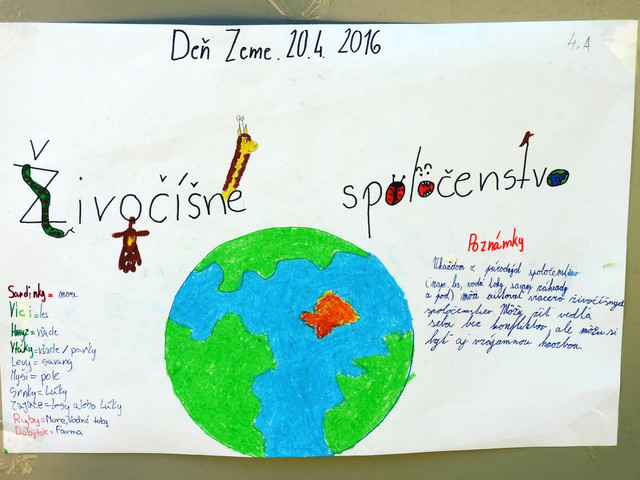 Deň Zeme. 20.4. 2016
4.A
Živočíšne spoločenstvo
Sardinky = more
Vlci = les
Hmyz = všade
Vtáky = všade /
Levy = savany
Myši = pole
Srnky = Lúky
Zajace = lesy alebo Lúky
Ryby = More, Vodné toky
Dobytok = Farma
Poznámky
V každom z spoločenstiev
(napr. les, vodné toky, savany, záhrady
a pod) môže viacero živočíšnych
spoločenstiev. Môžu žiť vedľa
seba bez konfliktov, ale môžu si
byť aj vzájomnou hrozbou.